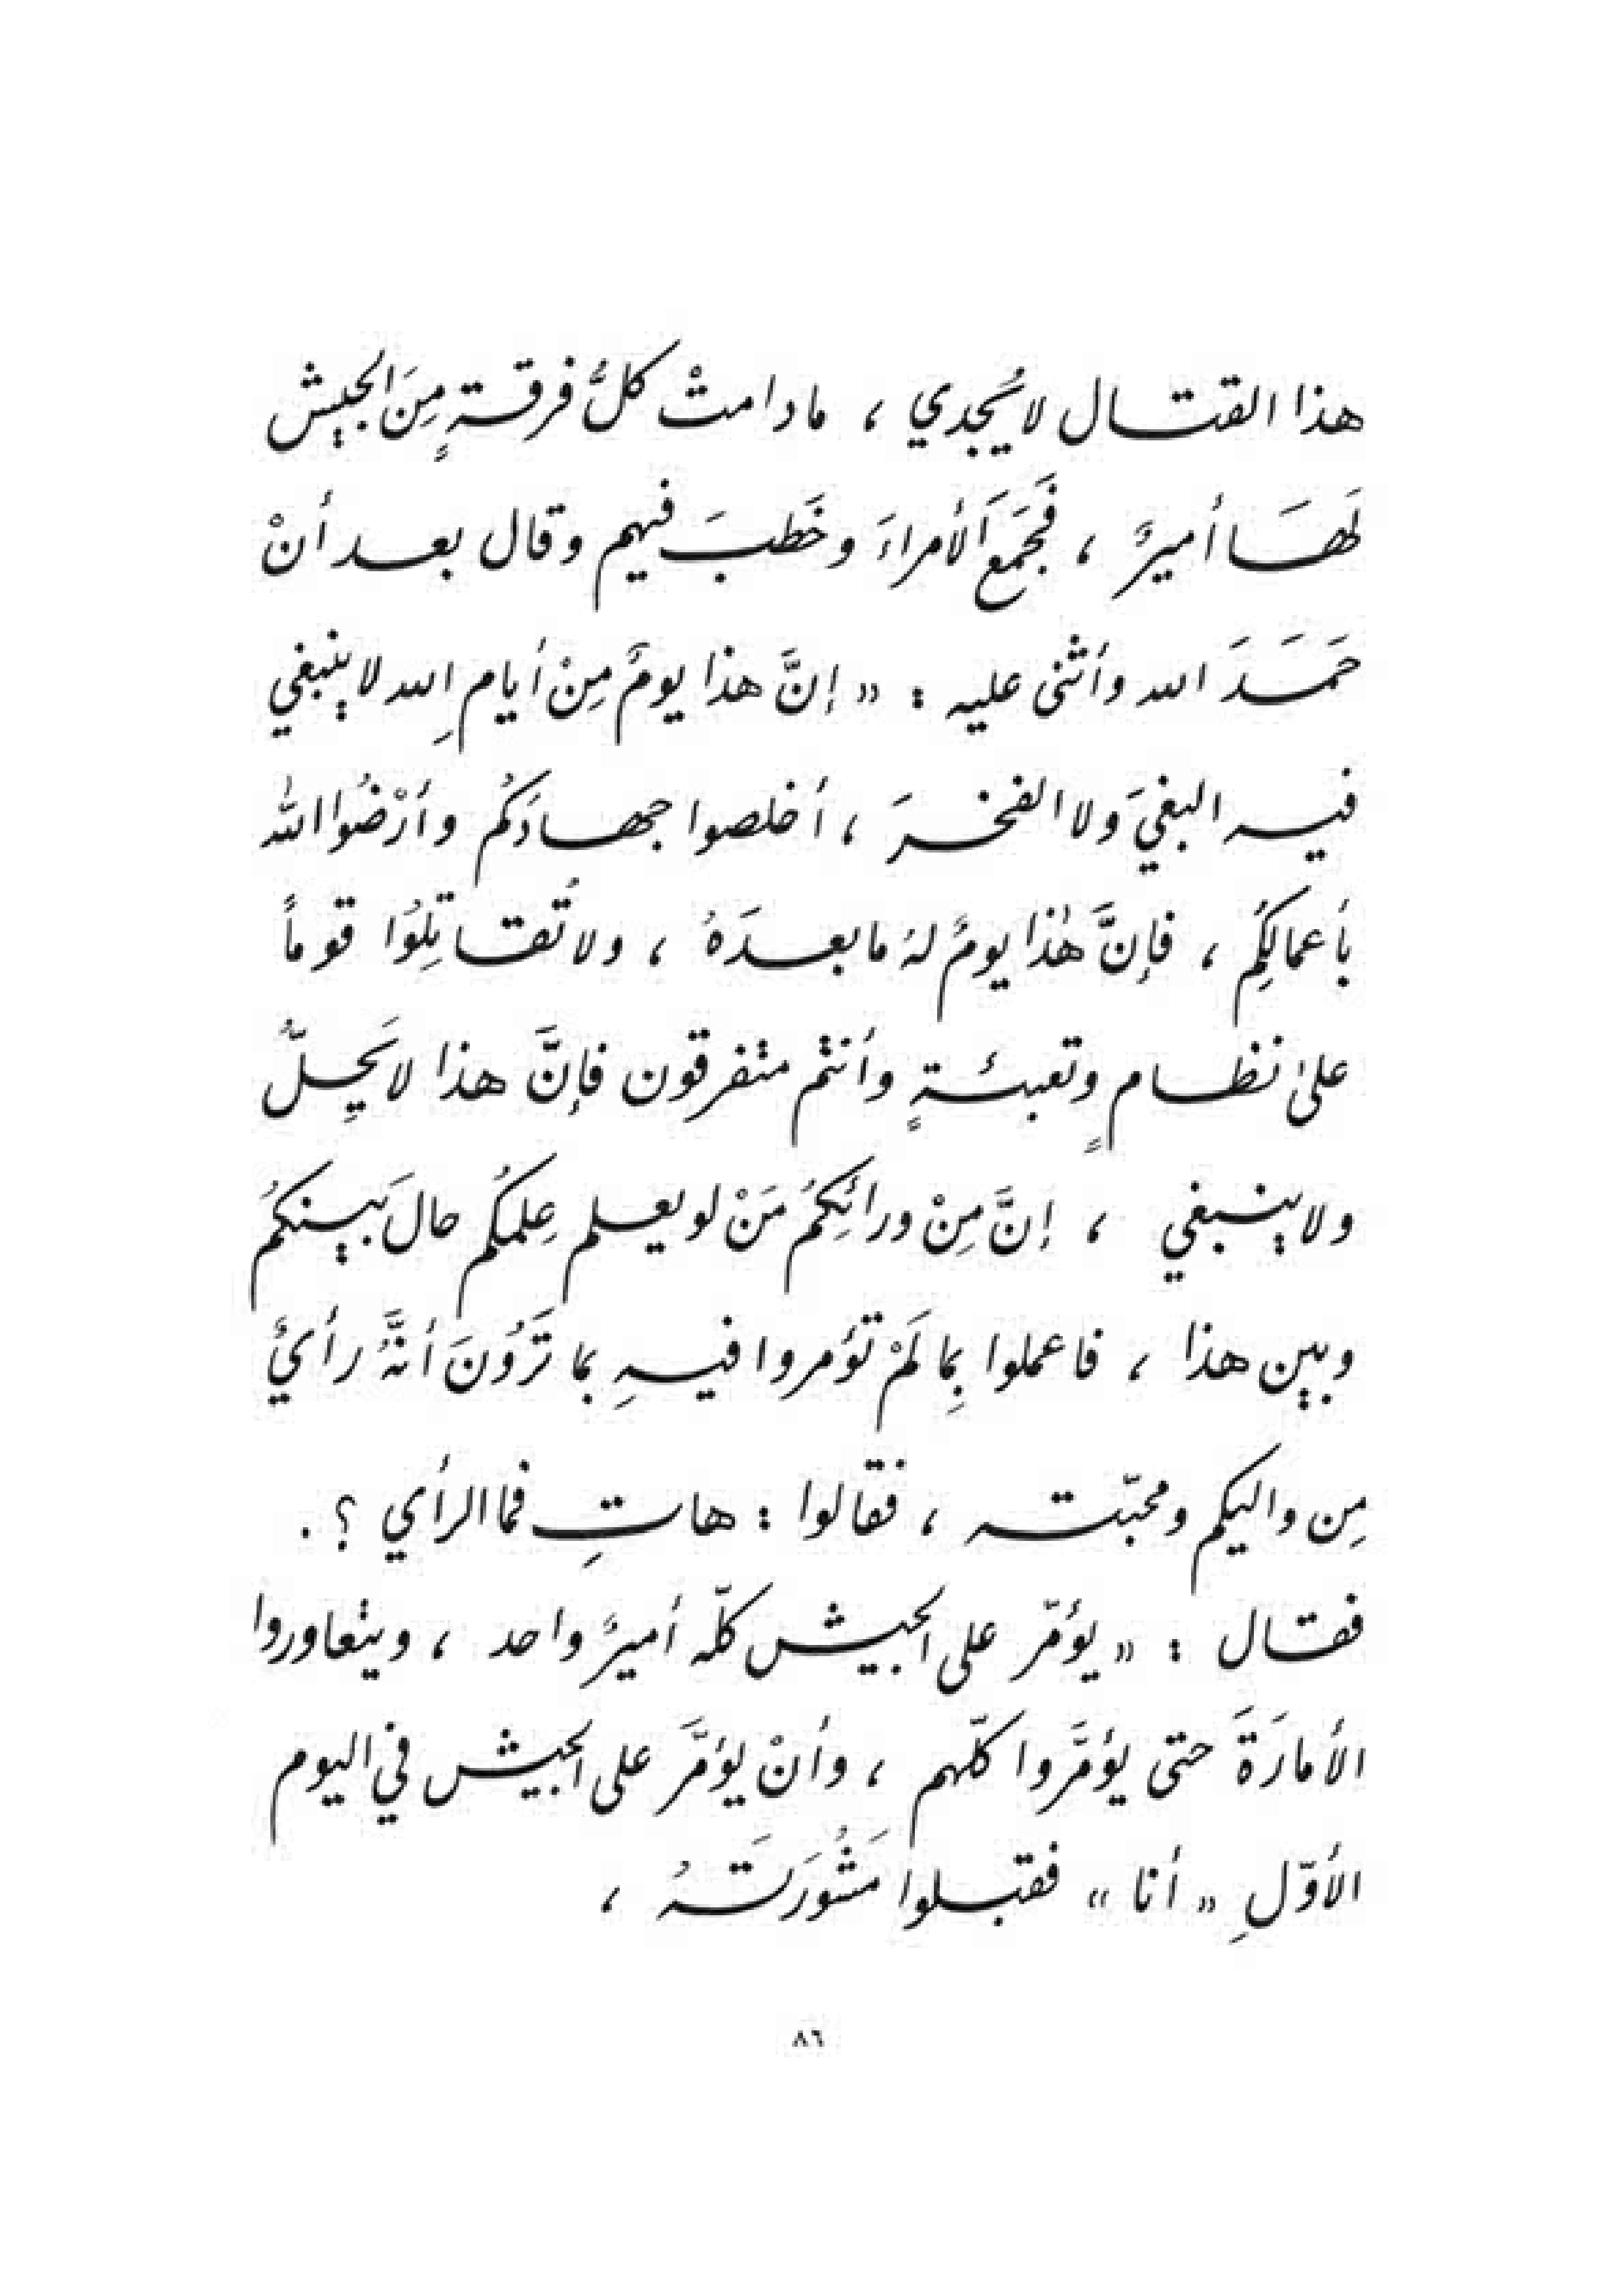 هذا القتال لا يُجدي ، مادامتْ كلُّ فرقةٍ مِنَ الجيش
لَهَا أميرٌ ، فَجَمَعَ الأمراءَ وخَطبَ فيهم وقال بعد أنْ
حَمَدَ الله وأثنى عليه : « إنَّ هذا يومٌ مِنْ أيامِ الله لا ينبغي
فيه البغيَ ولا الفخرَ ، أخلصوا جهادَكُم وأرْضُوا الله
بأعمالِكُم ، فإنَّ هٰذا يومٌ لهُ ما بعدَهُ ، ولا تُقاتِلُوا قوماً
علىٰ نظامٍ وتعبئةٍ وأنتم متفرقون فإنَّ هذا لا يَحِلُّ
ولا ينبغي ، إنَّ مِنْ ورائِكُم مَنْ لو يعلم عِلمكُم حالَ بَينكمُ
وبين هذا ، فاعملوا بِما لَمْ تؤمروا فيهِ بما تَرَوُنَ أنَّهُ رأيٌ
مِن واليكم ومحبّته ، فقالوا : هاتِ فما الرأي ؟ .
فقال : « يؤمّر على الجيش كلّه أميرٌ واحد ، ويتعاوروا
الأمارَةَ حتى يؤمَّروا كلّهم ، وأنْ يؤمَّرَ على الجيش في اليوم
الأوّلِ « أنا » فقبلوا مَشُورَتَهُ ،
٨٦